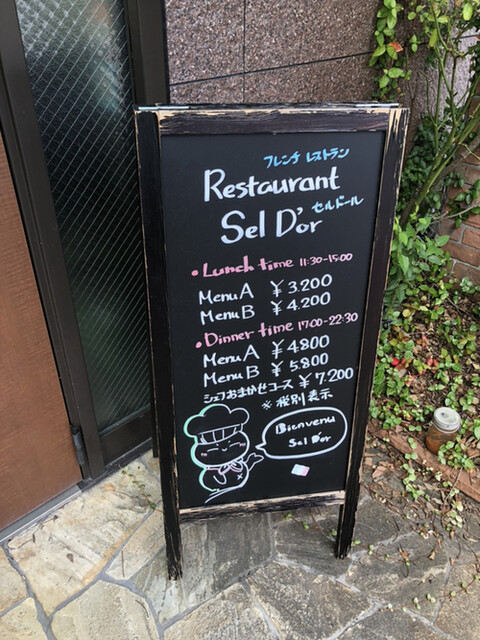 フレンチ レストラン
Restaurant
Sel D'or セルドール
• Lunch time 11:30-15:00
Menu A ¥3.200
Menu B ¥4.200
• Dinner time 17:00-22:30
Menu A ¥4800
Menu B ¥5.800
シェフおまかせコース ¥7.200
※税別表示
Bienvenu
Sel D'or